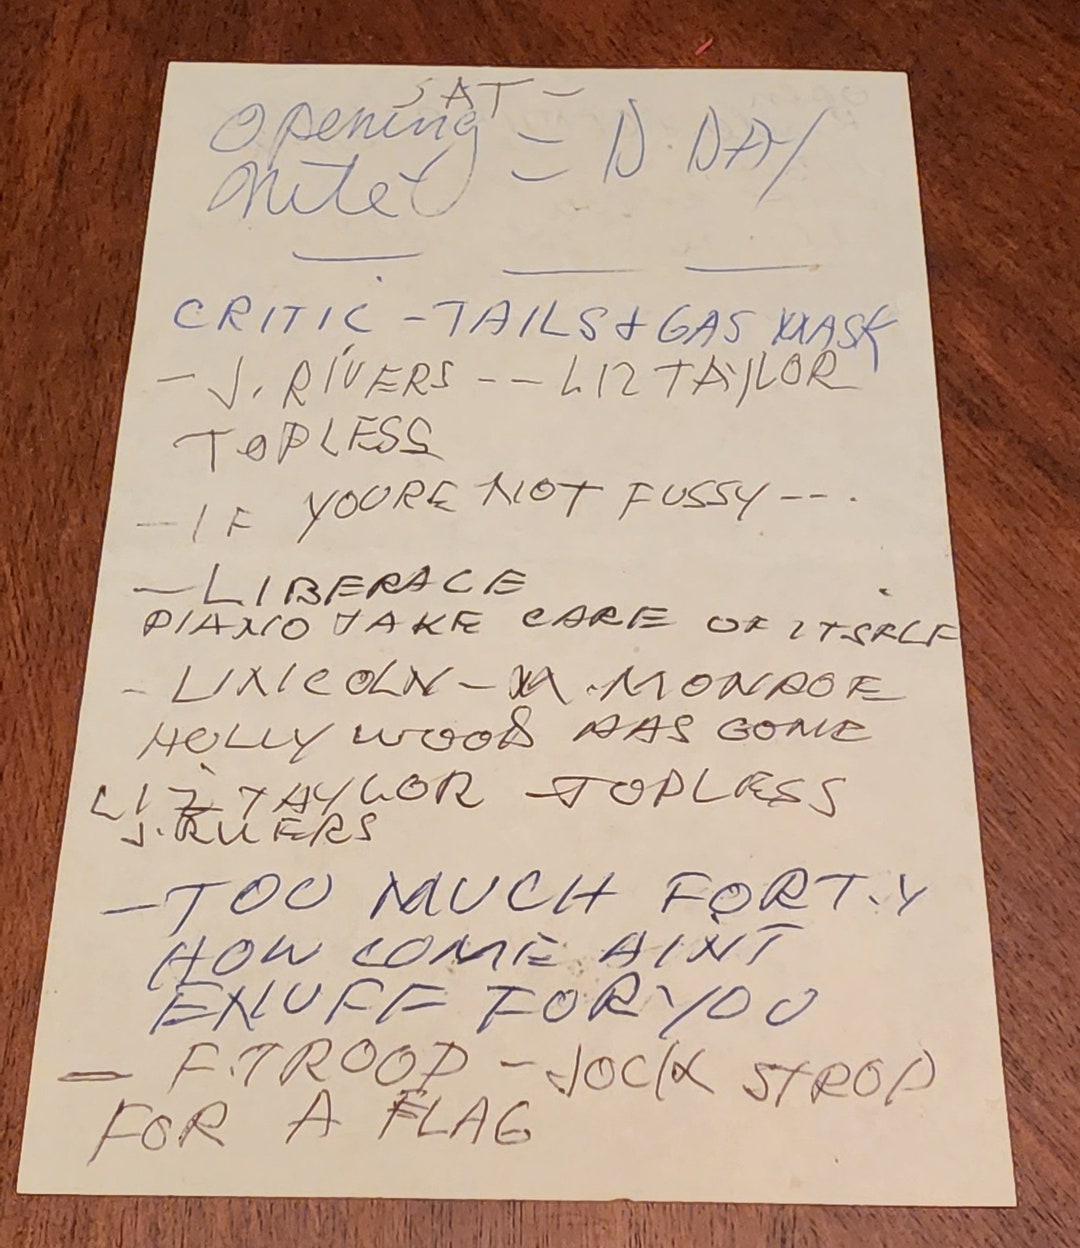 SAT -
Opening = D. DAY
Nite
CRITIC - TAILS & GAS MASK
- J. RIVERS -- LIZ TAYLOR
TOPLESS
- IF YOURE NOT FUSSY ---.
- LIBERACE
PIANO TAKE CARE OF ITSELF
- LINCOLN - M. MONROE
HOLLYWOOD HAS GONE
LIZ TAYLOR TOPLESS
J. RIVERS
- TOO MUCH FOR T.V
HOW COME AINT
ENUFF FOR YOU
- F. TROOP - JOCK STROP
FOR A FLAG